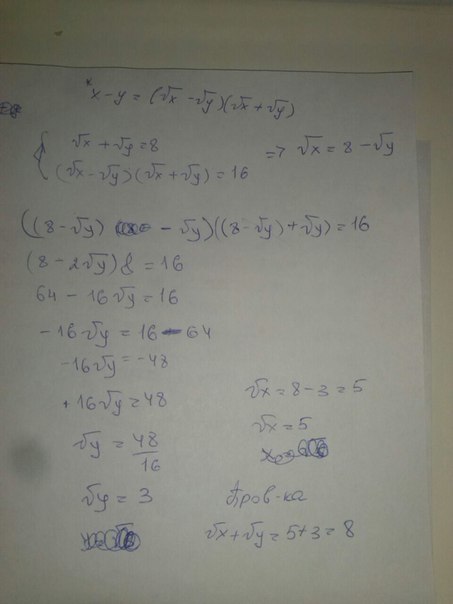 * x - y = (√x - √y)(√x + √y)
√x + √y = 8
(√x - √y)(√x + √y) = 16
=> √x = 8 - √y
((8 - √y) - √y)((8 - √y) + √y) = 16
(8 - 2√y) 8 = 16
64 - 16√y = 16
-16√y = 16 - 64
-16√y = -48
+16√y = 48
√y = 48/16
√y = 3
√x = 8 - 3 = 5
√x = 5
Пров-ка
√x + √y = 5 + 3 = 8